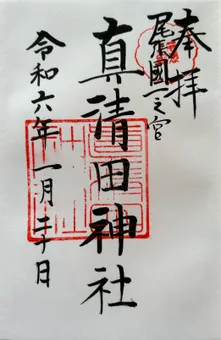 奉拝
尾張國一之宮
真清田神社
令和六年 一月二十日